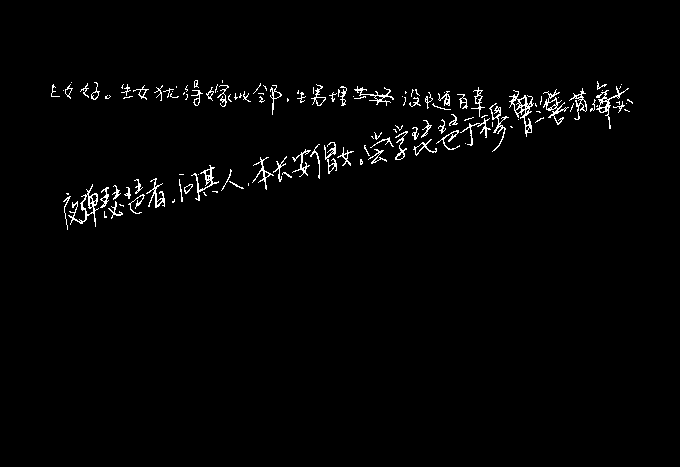 女好。生女犹得嫁比邻，生男埋没随百草
夜弹琵琶者，问其人，本长安倡女。尝学琵琶于穆、曹二善